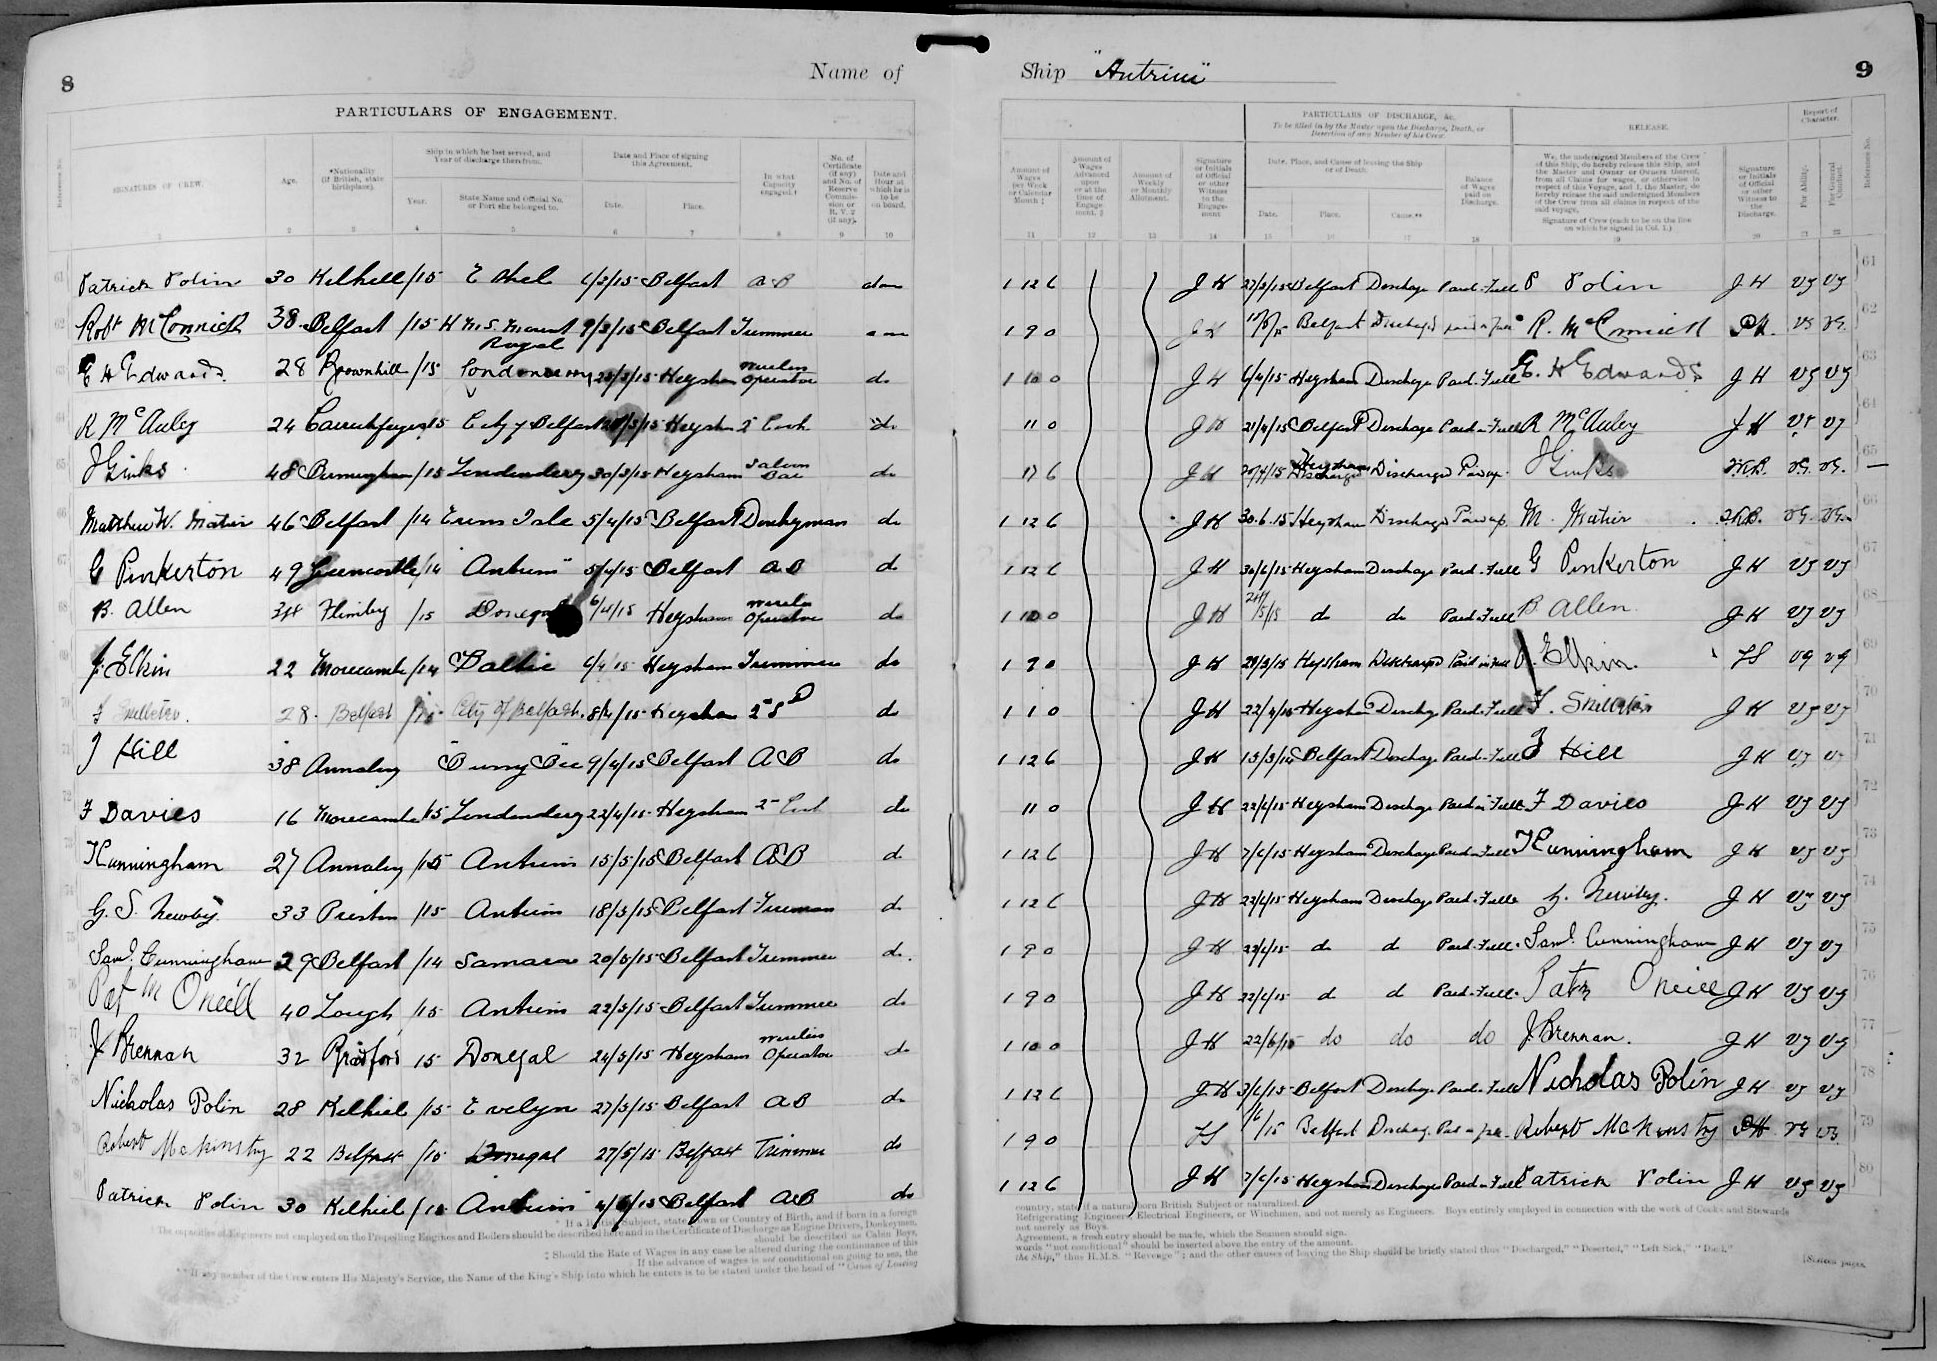 8
Name of
Ship "Antrim"
9
PARTICULARS OF ENGAGEMENT.
Reference No.
SIGNATURES OF CREW.
Age.
*Nationality (If British, state birthplace).
Ship in which he last served, and Year of discharge therefrom.
Year.
State Name and Official No. or Port she belonged to.
Date and Place of signing this Agreement.
Date.
Place.
In what Capacity engaged.†
No. of Certificate (if any) and No. of Reserve Commission or R. V. 2 (if any).
Date and Hour at which he is to be on board.
1 2 3 4 5 6 7 8 9 10
61 Patrick Polin 30 Kelkeel /15 Ethel Belfast AB
62 Robt McConnick 38 Belfast /15 H M S Mount Royal 9/3/15 Belfast Trimmer
63 E H Edwards 28 Brownhill /15 Londonderry Heysham Wireless Operator do
64 R McAuley 24 Carrickfergus 15 City of Belfast Heysham 2 Cook do
65 J Ginks 48 Birmingham /15 Londonderry 30/3/15 Heysham Saloon Bar do
66 Matthew W. Matier 46 Belfast /14 Erins Isle 5/4/15 Belfast Donkeyman do
67 G Pinkerton 49 Greencastle /14 Antrim 5/4/15 Belfast AB do
68 B. Allen 34 Flimby /15 Donegal 6/4/15 Heysham Wireless Operator do
69 J. Elkin 22 Morecambe /14 Baltic 6/4/15 Heysham Trimmer do
70 28 Belfast City of Belfast 8/4/15 Heysham do
71 J Hill 38 Annalong 9/4/15 Belfast AB do
72 F Davies 16 Morecambe 15 Londonderry 22/4/15 Heysham 2 Cook do
73 Cunningham 27 Annalong /15 Antrim 15/5/15 Belfast AB do
74 G. S. Newby 33 Preston /15 Antrim 18/5/15 Belfast Fireman do
75 Saml. Cunningham 29 Belfast /14 Samara 20/5/15 Belfast Trimmer do.
76 Pat M Oneill 40 Lough /15 Antrim 22/5/15 Belfast Trimmer do
77 J Brennan 32 Bradford 15 Donegal 24/5/15 Heysham Wireless Operator do
78 Nicholas Polin 28 Kelkiel /15 Evelyn 27/5/15 Belfast AB do
79 Robert McKinstry 22 Belfast /15 Donegal 27/5/15 Belfast Trimmer do
80 Patrick Polin 30 Kelkiel /15 Antrim 4/6/15 Belfast AB do
* If a British Subject, state Town or Country of Birth, and if born in a foreign
The capacities of Engineers not employed on the Propelling Engines and Boilers should be described here and in the Certificate of Discharge as Engine Drivers, Donkeymen,
should be described as Cabin Boys,
‡ Should the Rate of Wages in any case be altered during the continuance of this
If the advance of wages is not conditional on going to sea, the
** If any member of the Crew enters His Majesty's Service, the Name of the King's Ship into which he enters is to be stated under the head of "Cause of Leaving
Amount of Wages per Week or Calendar Month ‡
Amount of Wages Advanced upon or at the time of Engagement. §
Amount of Weekly or Monthly Allotment.
Signature or Initials of Official or other Witness to the Engagement
PARTICULARS OF DISCHARGE, &c.
To be filled in by the Master upon the Discharge, Death, or Desertion of any Member of his Crew.
Date, Place, and Cause of leaving the Ship or of Death.
Date.
Place.
Cause.**
Balance of Wages paid on Discharge.
RELEASE.
We, the undersigned Members of the Crew of this Ship, do hereby release this Ship, and the Master and Owner or Owners thereof, from all Claims for wages, or otherwise in respect of this Voyage, and I, the Master, do hereby release the said undersigned Members of the Crew from all claims in respect of the said voyage.
Signature of Crew (each to be on the line on which he signed in Col. 1.)
Signature or Initials of Official or other Witness to the Discharge.
Report of Character.
For Ability.
For General Conduct.
Reference No.
11 12 13 14 15 16 17 18 19 20 21 22
1 12 6 J H 27/3/15 Belfast Discharge Paid-Full P Polin J H VG VG 61
1 9 0 J H Belfast Discharged R. McConnick VG VG 62
1 10 0 J H 6/4/15 Heysham Discharge Paid-Full E. H Edwards J H VG VG 63
1 1 0 J H 21/4/15 Belfast Discharge Paid-Full R McAuley J H VG VG 64
17 6 J H Heysham Discharged J Ginks VG. VG. 65
1 12 6 J H 30.6.15 Heysham Discharged M. Matier VG. VG. 66
1 12 6 J H 30/6/15 Heysham Discharge Paid-Full G Pinkerton J H VG VG 67
1 10 0 J H do do Paid-Full B Allen J H VG VG 68
1 9 0 J H Heysham Discharged Paid in Full J. Elkin VG VG 69
1 1 0 J H 22/4/15 Heysham Discharge Paid-Full J H VG VG 70
1 12 6 J H Belfast Discharge Paid-Full J Hill J H VG VG 71
1 1 0 J H 22/6/15 Heysham Discharge Paid-Full F Davies J H VG VG 72
1 12 6 J H 7/6/15 Heysham Discharge Paid-Full Cunningham J H VG VG 73
1 12 6 J H 22/6/15 Heysham Discharge Paid-Full G. Newby. J H VG VG 74
1 9 0 J H 22/6/15 do do Paid-Full Saml. Cunningham J H VG VG 75
1 9 0 J H 22/6/15 do do Paid-Full Oneill J H VG VG 76
1 10 0 J H 22/6/15 do do do J. Brennan. J H VG VG 77
1 12 6 J H 3/6/15 Belfast Discharge Paid-Full Nicholas Polin J H VG VG 78
1 9 0 Belfast Robert McKinstry VG VG. 79
1 12 6 J H 7/6/15 Heysham Discharge Paid-Full Patrick Polin J H VG VG 80
country, state if a natural born British Subject or naturalized.
Refrigerating Engineers, Electrical Engineers, or Winchmen, and not merely as Engineers. Boys entirely employed in connection with the work of Cooks and Stewards
not merely as Boys.
Agreement, a fresh entry should be made, which the Seamen should sign.
words "not conditional" should be inserted above the entry of the amount.
the Ship," thus H.M.S. "Revenge"; and the other causes of leaving the Ship should be briefly stated thus "Discharged," "Deserted," "Left Sick," "Died."
[Sixteen pages.